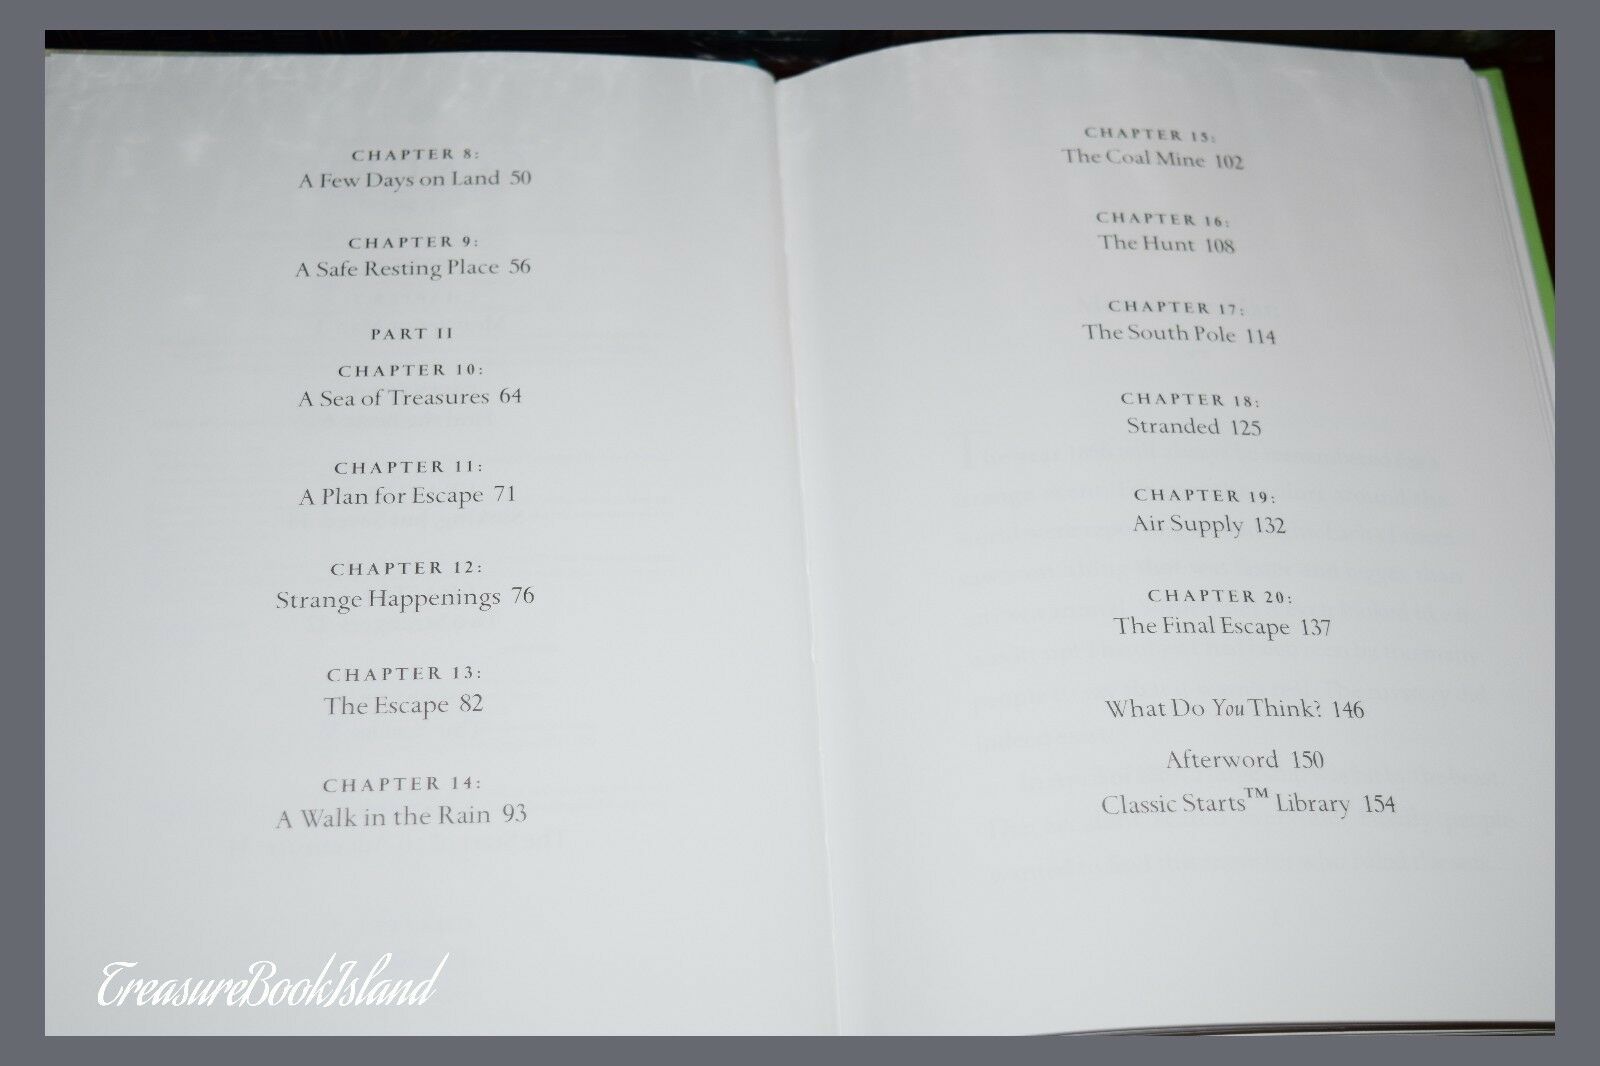 CHAPTER 8:
A Few Days on Land 50
CHAPTER 9:
A Safe Resting Place 56
PART II
CHAPTER 10:
A Sea of Treasures 64
CHAPTER 11:
A Plan for Escape 71
CHAPTER 12:
Strange Happenings 76
CHAPTER 13:
The Escape 82
CHAPTER 14:
A Walk in the Rain 93
CHAPTER 15:
The Coal Mine 102
CHAPTER 16:
The Hunt 108
CHAPTER 17:
The South Pole 114
CHAPTER 18:
Stranded 125
CHAPTER 19:
Air Supply 132
CHAPTER 20:
The Final Escape 137
What Do You Think? 146
Afterword 150
Classic Starts™ Library 154
TreasureBookIsland